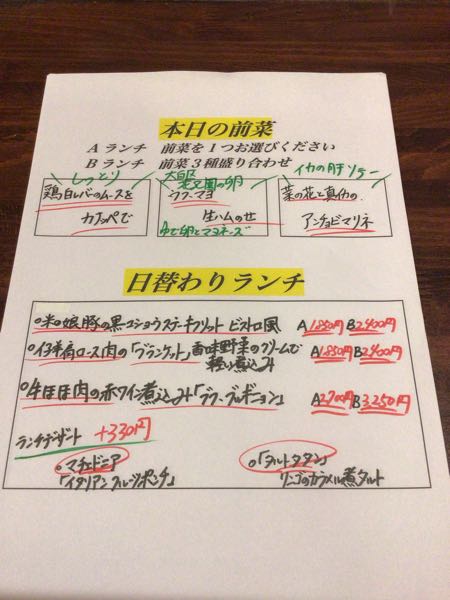 本日の前菜
A ランチ 前菜を1つお選びください
B ランチ 前菜3種盛り合わせ
しっとり
鶏白レバーのムースを
カナッペで
花と園の卵
ウフ・マヨ
生ハムのせ
ゆで卵とマヨネーズ
イカの肝ソテー
菜の花と真イカの
アンチョビマリネ
日替わりランチ
米の娘豚の黒コショウステーキフリット ビストロ風 A1,850円 B2,400円
仔羊肩ロース肉の「ブランケット」香味野菜のクリームで A1,850円 B2,400円
軽い煮込み
牛ほほ肉の赤ワイン煮込み「ブフ・ブルギニョン」 A2700円 B3,250円
ランチデザート +330円
マチェドニア
「イタリアンフルーツポンチ」
「タルトタタン」
リンゴのカラメル煮タルト